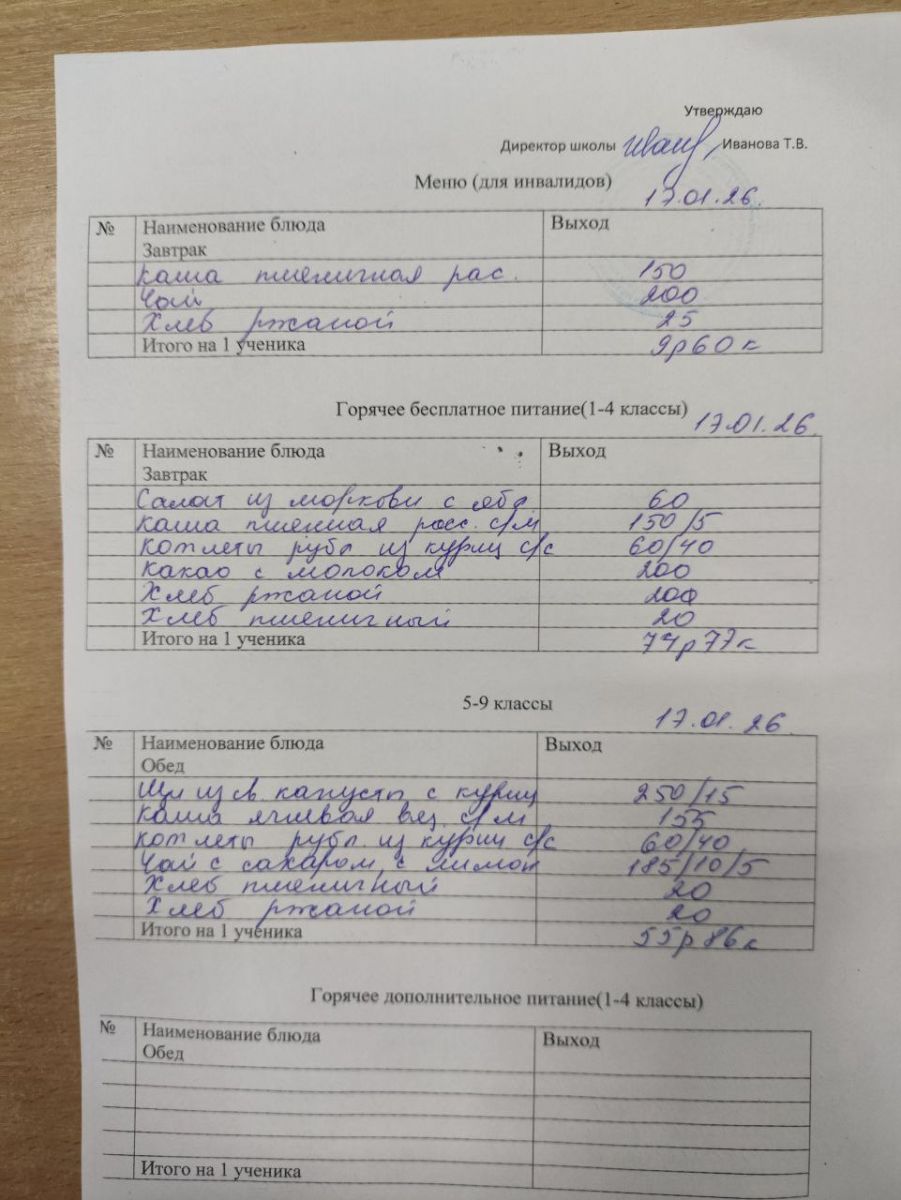 Утверждаю
Директор школы Иванова Т.В.
Меню (для инвалидов)
17.01.26.
№ Наименование блюда Выход
Завтрак
каша пшеничная рас. 150
Чай 200
Хлеб ржаной 25
Итого на 1 ученика 9р60к
Горячее бесплатное питание(1-4 классы)
17.01.26.
№ Наименование блюда Выход
Завтрак
Салат из моркови с ябл 60
каша пшенная расс. с/м 150/5
котлеты рубл из куриц с/с 60/40
какао с молоком 200
Хлеб ржаной 200
Хлеб пшеничный 20
Итого на 1 ученика 74р77к
5-9 классы
17.01.26
№ Наименование блюда Выход
Обед
Щи из св. капусты с куриц 250/15
каша ячневая вяз с/м 155
котлеты рубл. из куриц с/с 60/40
Чай с сахаром, с лимон 185/10/5
Хлеб пшеничный 20
Хлеб ржаной 20
Итого на 1 ученика 55р86к
Горячее дополнительное питание(1-4 классы)
№ Наименование блюда Выход
Обед
Итого на 1 ученика